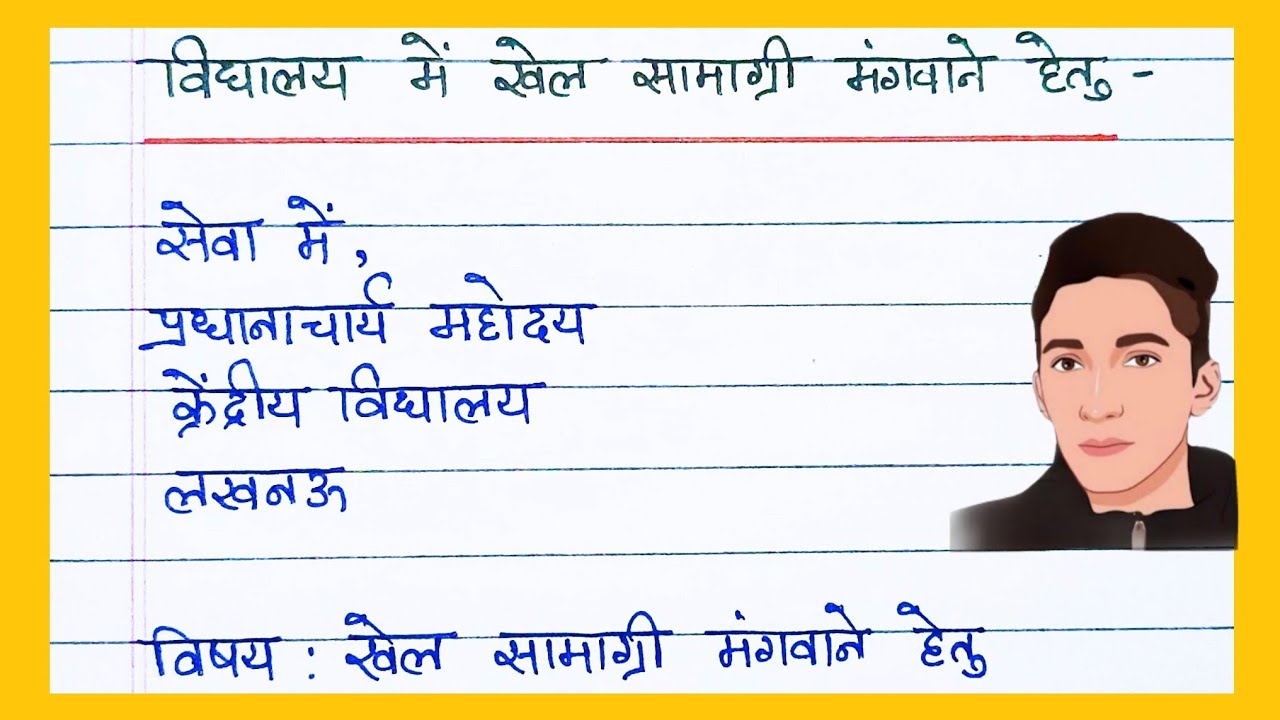 विद्यालय में खेल सामाग्री मंगवाने हेतु -
सेवा में,
प्रधानाचार्य महोदय
क्रेंद्रीय विद्यालय
लखनऊ
विषय : खेल सामाग्री मंगवाने हेतु